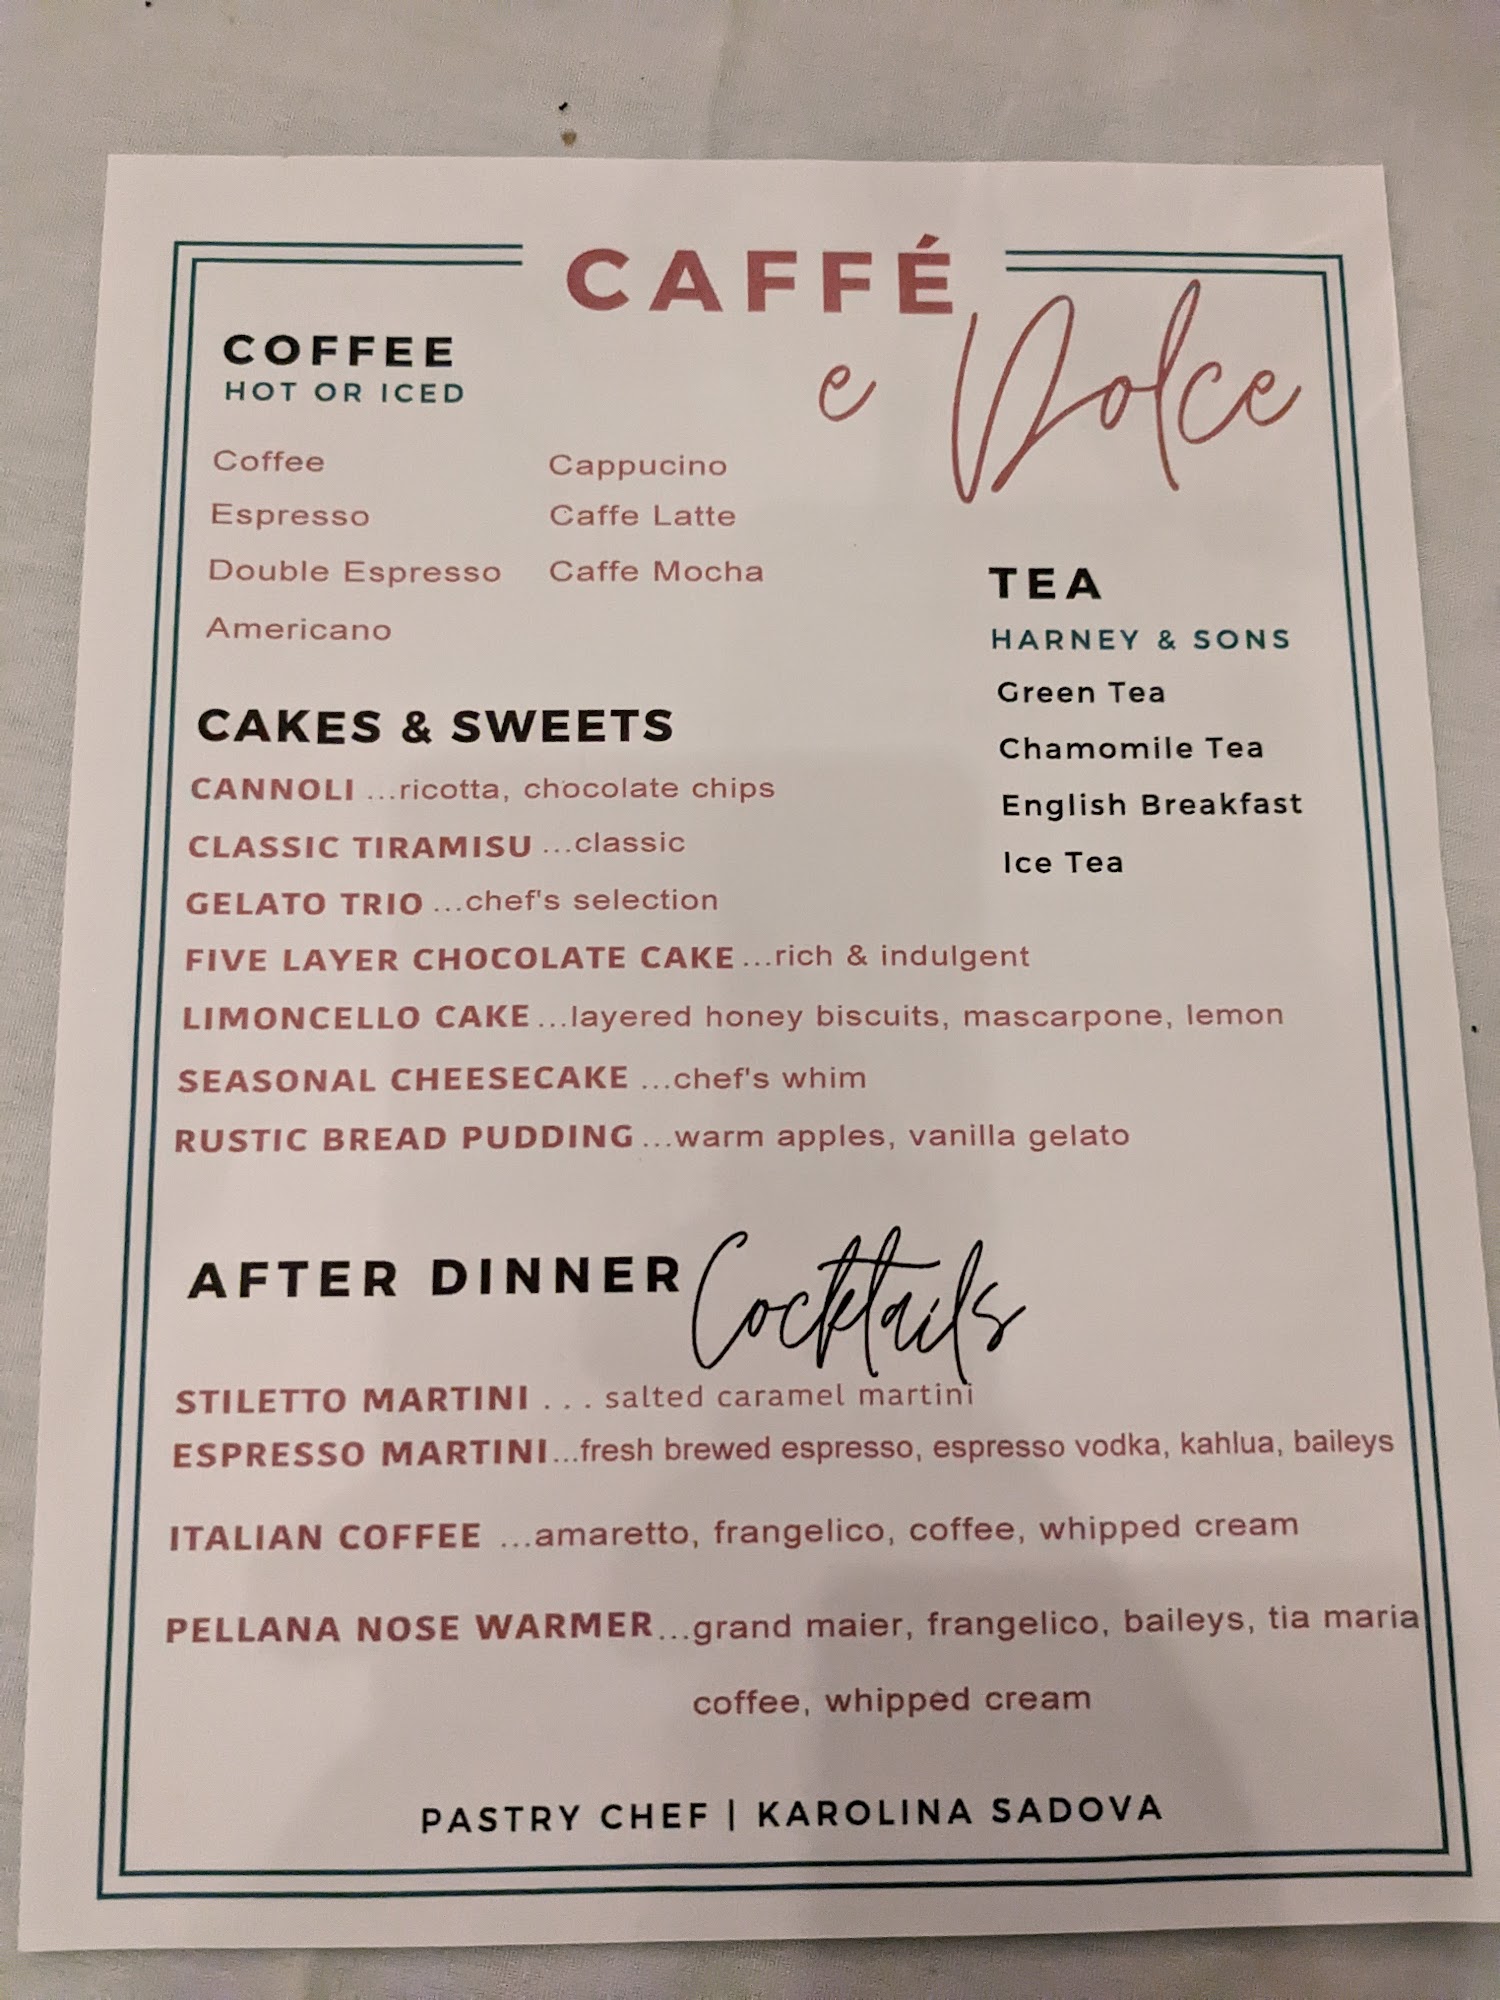 CAFFÉ
e Dolce
COFFEE
HOT OR ICED
Coffee
Espresso
Double Espresso
Americano
Cappucino
Caffe Latte
Caffe Mocha
TEA
HARNEY & SONS
Green Tea
Chamomile Tea
English Breakfast
Ice Tea
CAKES & SWEETS
CANNOLI ...ricotta, chocolate chips
CLASSIC TIRAMISU ...classic
GELATO TRIO ...chef's selection
FIVE LAYER CHOCOLATE CAKE ...rich & indulgent
LIMONCELLO CAKE ...layered honey biscuits, mascarpone, lemon
SEASONAL CHEESECAKE ...chef's whim
RUSTIC BREAD PUDDING ...warm apples, vanilla gelato
AFTER DINNER Cocktails
STILETTO MARTINI . . . salted caramel martini
ESPRESSO MARTINI...fresh brewed espresso, espresso vodka, kahlua, baileys
ITALIAN COFFEE ...amaretto, frangelico, coffee, whipped cream
PELLANA NOSE WARMER...grand maier, frangelico, baileys, tia maria
coffee, whipped cream
PASTRY CHEF | KAROLINA SADOVA